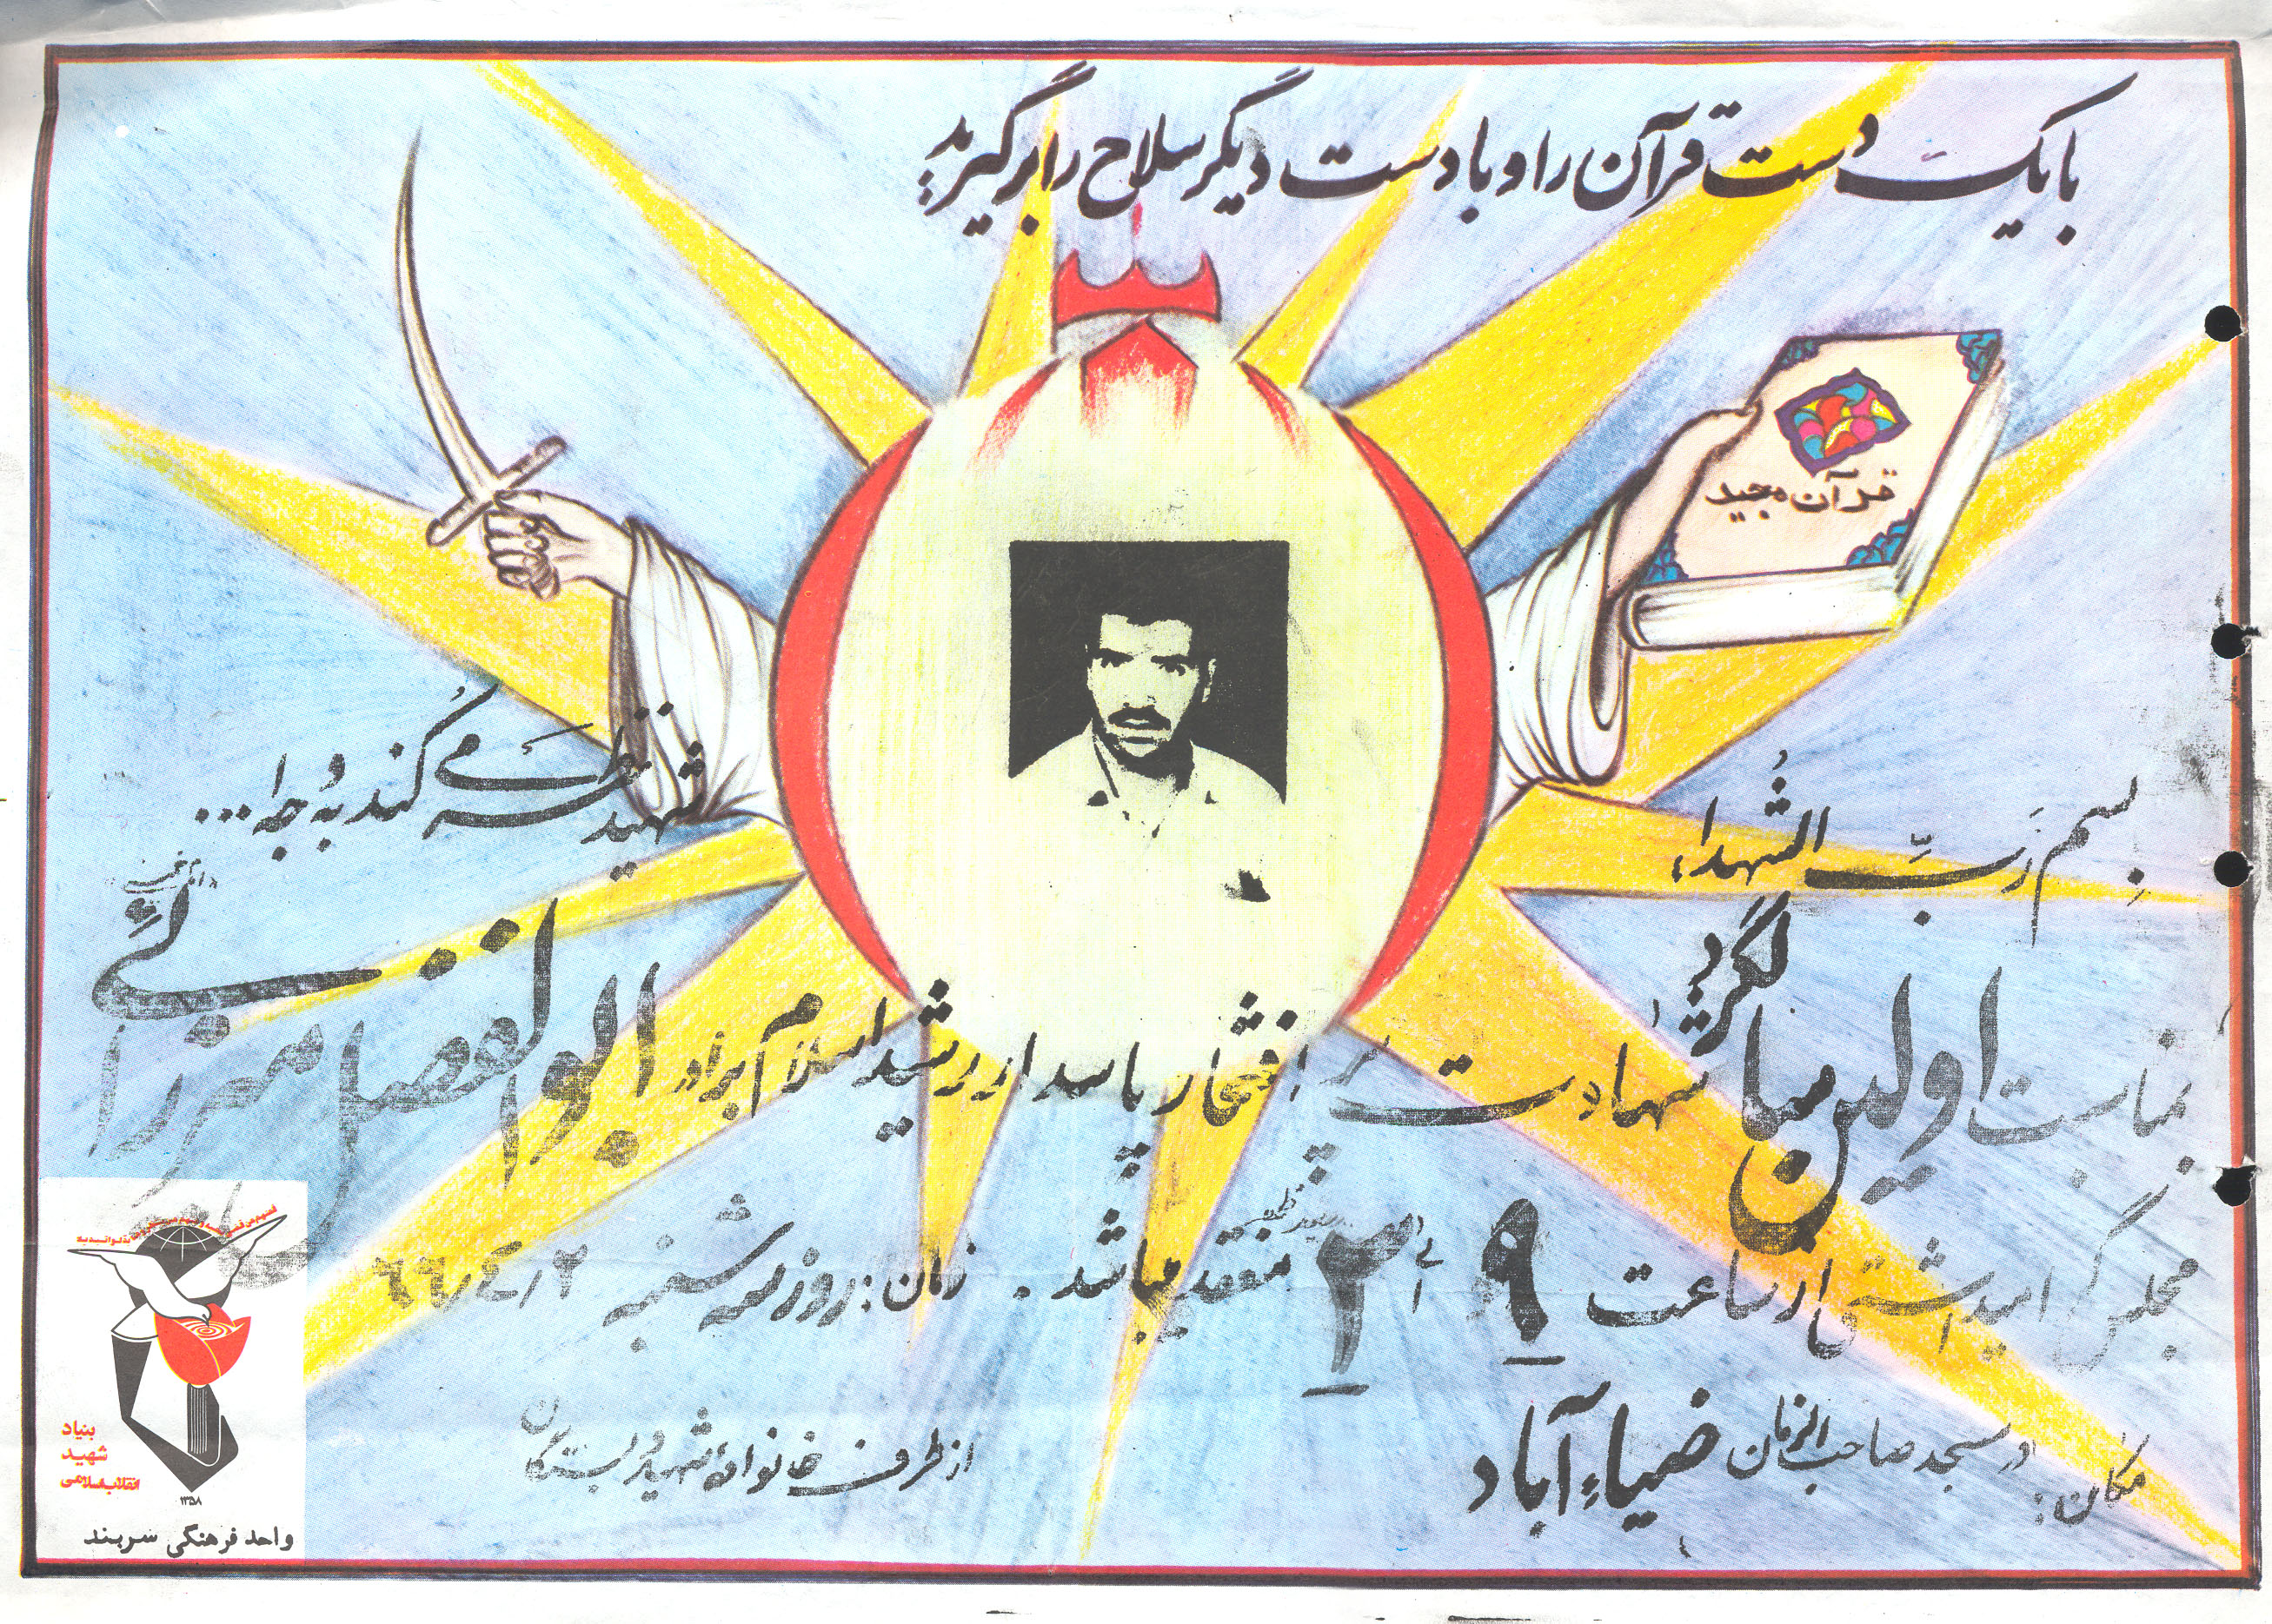 با یک دست قرآن را و با دست دیگر سلاح را برگیرید
قرآن مجید
شهید نظر می کند به وجه ا...
امام خمینی
بسم رب الشهداء
بمناسبت اولین سالگرد شهادت پر افتخار پاسدار رشید اسلام برادر ابوالفضل میرزائی
مجلس گرامیداشتی از ساعت ۹ الی ۱۲ منعقد میباشد. زمان: روز سه شنبه
مکان: در مسجد صاحب الزمان ضیاءآباد
از طرف خانواده شهید و بستگان
بنیاد
شهید
انقلاب اسلامی
۱۳۵۸
واحد فرهنگی سربند